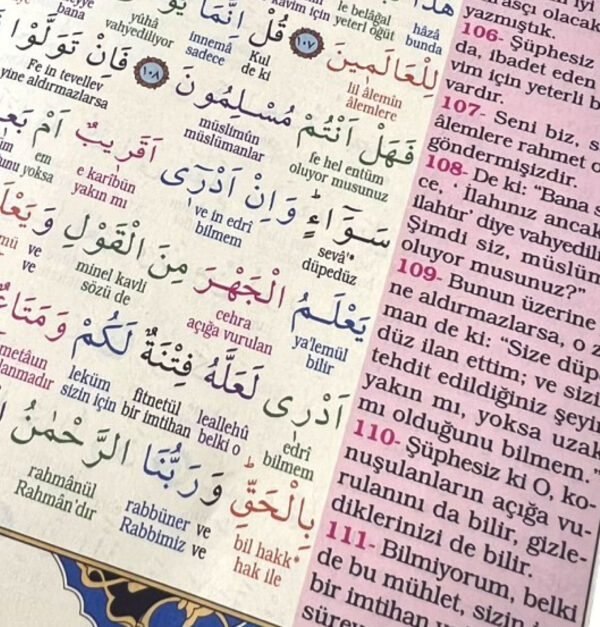 هٰذَا
hâzâ le belâgal
bunda yeterli öğüt kavim için
لِلْعَالَمِينَ ١٠٧ قُلْ اِنَّمَا
lil âlemîn Kul innemâ yûhâ
âlemlere de ki sadece vahyediliyor bana
فَهَلْ اَنْتُمْ مُسْلِمُونَ ١٠٨ فَاِنْ تَوَلَّوْا
fe hel entüm müslimûn Fe in tevellev
oluyor musunuz müslümanlar yine aldırmazlarsa
سَوَٓاءٍ وَاِنْ اَدْرٓى اَقَرٖيبٌ اَمْ
sevâ' ve in edrî e karibün em
düpedüz bilmem yakın mı yoksa
يَعْلَمُ الْجَهْرَ مِنَ الْقَوْلِ
ya'lemül cehra minel kavli ve
bilir açığa vurulan sözü de ve
اَدْرٖى لَعَلَّهُ فِتْنَةٌ لَكُمْ
edrî leallehû fitnetül leküm metâun
bilmem belki o bir imtihan sizin için
بِالْحَقِّ وَرَبُّنَا الرَّحْمٰنُ
bil hakk rabbüner ve rahmânül
hak ile Rabbimiz ve Rahmân'dır
olacak
yazmıştık.
106- Şüphesiz
da, ibadet eden
vim için yeterli b
vardır.
107- Seni biz, s
âlemlere rahmet o
göndermişizdir.
108- De ki: “Bana
ce, ‘ İlahınız ancak
ilahtır’ diye vahyedili
Şimdi siz, müslüm
oluyor musunuz?”
109- Bunun üzerine
ne aldırmazlarsa, o z
man de ki: “Size düp
düz ilan ettim; ve sizi
tehdit edildiğiniz şeyi
yakın mı, yoksa uzak
mı olduğunu bilmem.”
110- Şüphesiz ki O, ko-
nuşulanların açığa vu-
rulanını da bilir, gizle-
diklerinizi de bilir.
111- Bilmiyorum, belki
de bu mühlet, sizin
bir imtihan